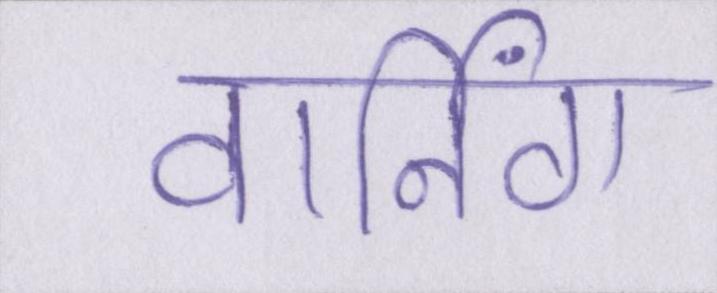 वार्निंग